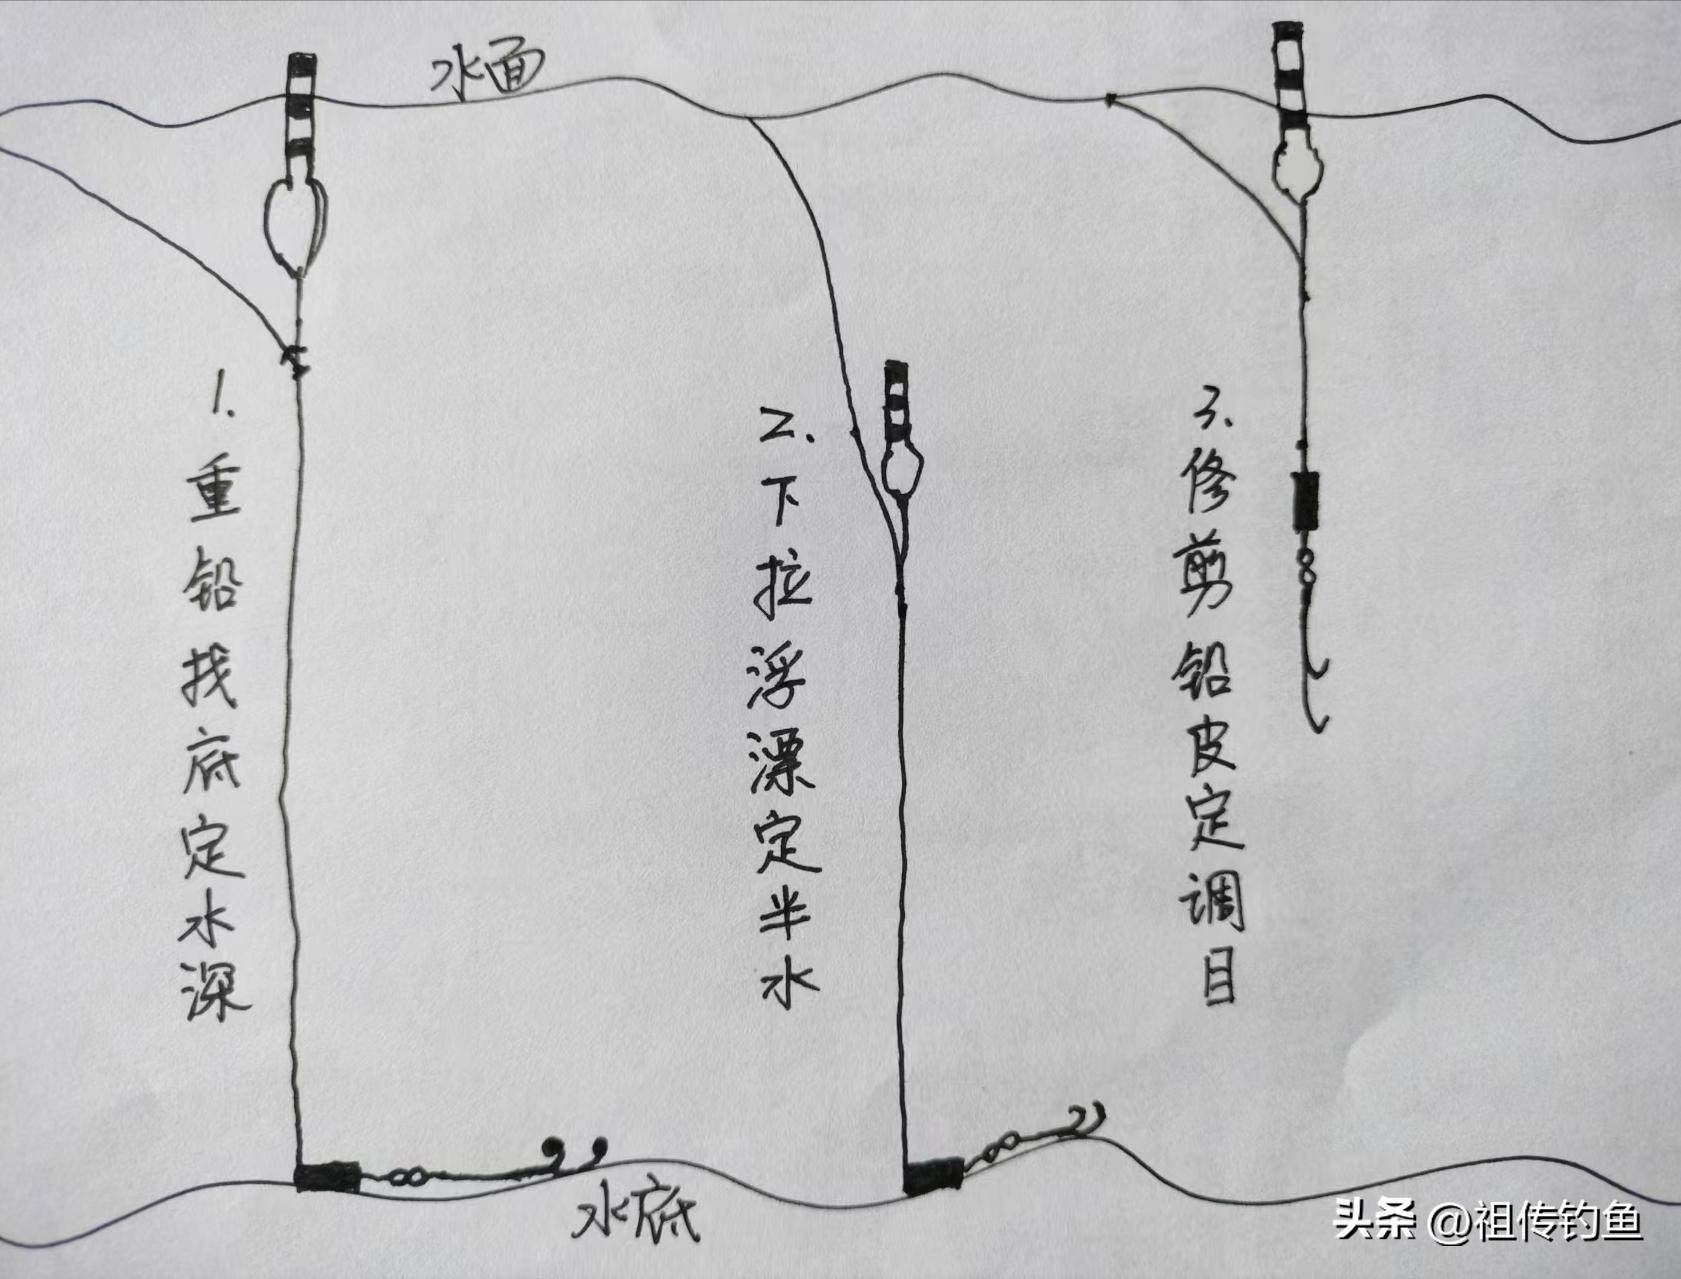 水面
1.重铅找底定水深
2.下拉浮漂定半水
3.修剪铅皮定调目
水底
头条 @祖传钓鱼